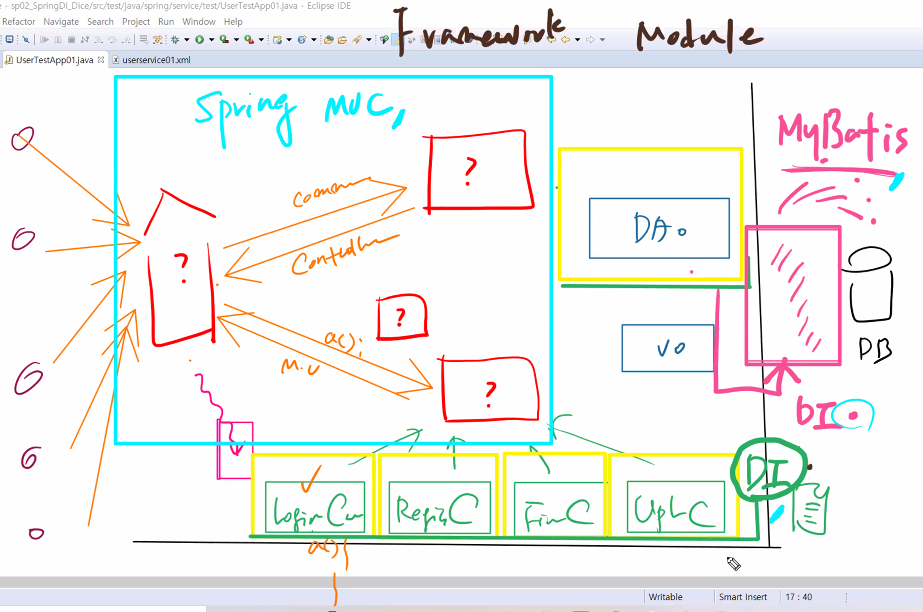 - sp02_SpringDI_Dice/src/test/java/spring/service/test/UserTestApp01.java - Eclipse IDE
Refactor Navigate Search Project Run Window Help
Framework Module
UserTestApp01.java userservice01.xml
Spring MVC,
MyBatis
?
DAO
?
?
a();
M.V
VO
DB
?
DI
DI
LoginCon RegisC FinC UpdC
a();
Writable Smart Insert 17 : 40